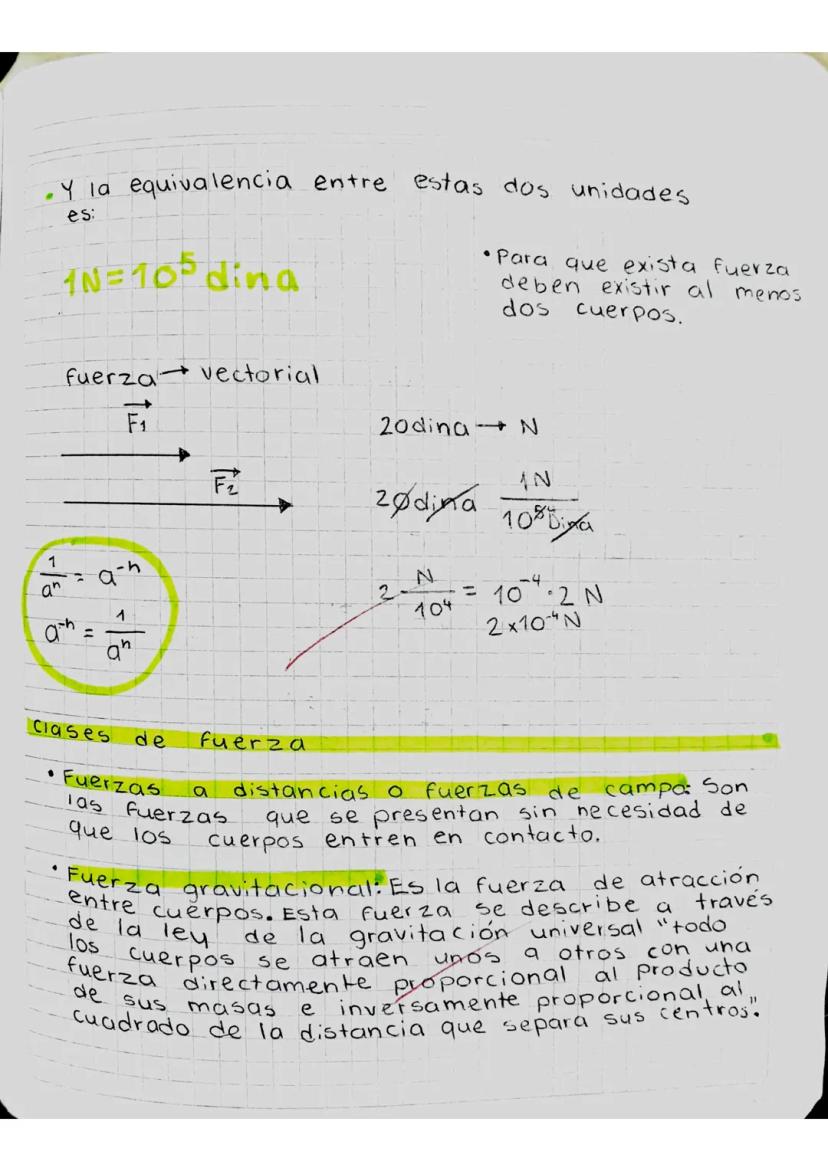 • Y la equivalencia entre estas dos unidades
es:
1N=10⁵ dina
• Para que exista fuerza
deben existir al menos
dos cuerpos.
fuerza → vectorial
F₁
F₂
20dina → N
20dina 1N / 10⁵ Dina
2 N/10⁴ = 10⁻⁴·2 N
2x10⁻⁴N
1/aⁿ = a⁻ⁿ
a⁻ⁿ = 1/aⁿ
Clases de fuerza
• Fuerzas a distancias o fuerzas de campo: Son
las fuerzas que se presentan sin necesidad de
que los cuerpos entren en contacto.
• Fuerza gravitacional: Es la fuerza de atracción
entre cuerpos. Esta fuerza se describe a través
de la ley de la gravitación universal "todo
los cuerpos se atraen unos a otros con una
fuerza directamente proporcional al producto
de sus masas e inversamente proporcional al
cuadrado de la distancia que separa sus centros."